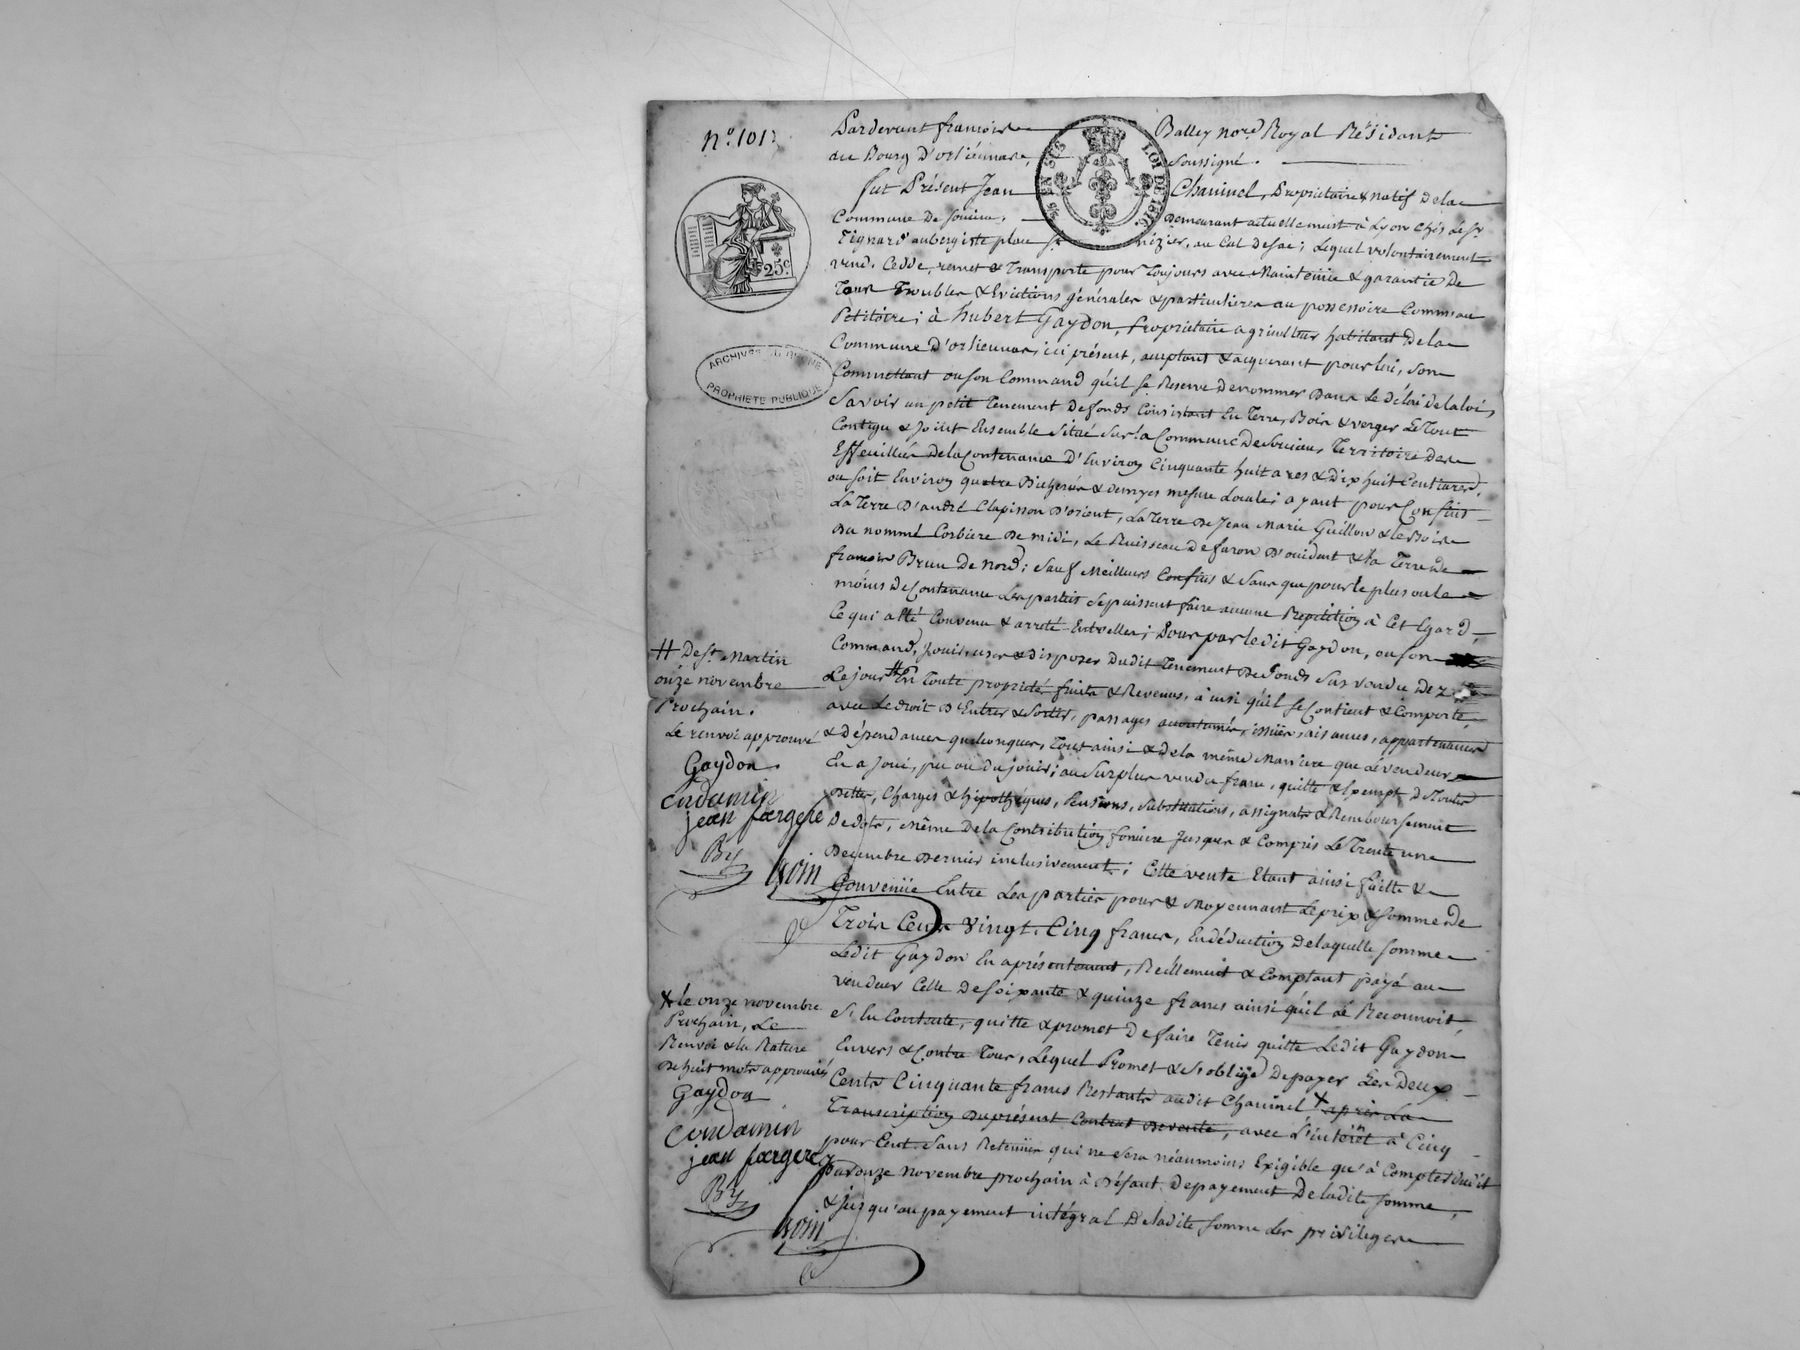 N.º 101.
Pardevant françois Balley No.re Royal Résidant
au Bourg d'orliénas, soussigné.
fut Présent Jean Chavinel, Propriétaire & natif de la
Commune de Soucieu, Demeurant actuellement à Lyon chés le Sr
Tignard aubergiste place St nizier, au Cul de sac; Lequel volontairement
vend, Cedde, remet & Transporte pour Toujours avec Maintenüe & garantie De
Tous Troubles & Evictions générales & particulieres au possessoire Comme au
Petitoire; à hubert Gaydon, Propriétaire agriculteur habitant De la
Commune d'orlienas, ici présent, acceptant & acquerant pour lui, son
Commettant ou son Command qu'il se Reserve de nommer Dans Le délai de la loi,
Savoir un petit Tenement de fonds Consistant En Terre, Bois & verger Le Tout
Contigu & Joint Ensemble Situé Sur la Commune De Soucieu, Territoire Des
Effeuillés De la Contenance d'Environ Cinquante huit ares & Dix huit Centiares,
ou soit Environ quatre Bicherées & demyes mesure Locale; ayant pour Confins
La Terre D'andré Clapisson D'orient, La Terre De Jean Marie Guillon & le Bois
Du nommé Corbiere De midi, Le Ruisseau de faron D'occident & la Terre de
françois Brun De Nord; Sauf Meilleurs Confins & Sans que pour le plus ou le
moins de Contenance Les parties se puissent faire aucune Repetition à Cet Egard,
Ce qui a Eté Convenu & arreté Entr'elles; Pour par le dit Gaydon, ou son
Command, Jouir, user & disposer Dudit Tenement De fonds Sus vendu Dez
Le jour # En Toute propriété, fruits & Revenus, ainsi qu'il se Contient & Comporte,
avec Le droit D'Entrer & Sortir, passages accoutumés, issües, aisances, appartenances
& dépendances quelconques, Tout ainsi & De la même Maniere que le vendeur
En a Joui, pu ou du jouir; au Surplus vendu franc, quitte & Exempt de Toutes
Dettes, Charges & hipothéques, Pensions, Substitutions, assignats & Remboursement
De dots, Même De la Contribution fonciere Jusques & Compris Le Trente une
Decembre Dernier inclusivement; Cette vente Etant ainsi faitte &
Convenüe Entre Les parties pour & Moyennant Le prix & Somme de
Trois Cents Vingt-Cinq francs, En déduction De laquelle somme
Ledit Gaydon En a présentement, Réellement & Comptant payé au
vendeur Celle De soixante & quinze francs ainsi qu'il le Reconnoit,
S'en Contente, quitte & promet De faire Tenir quitte Ledit Gaydon
Envers & Contre Tous, Lequel Promet & s'oblige De payer Les Deux
Cents Cinquante francs Restants audit Chavinel X après La
Transcription du présent Contrat De vente, avec L'intérêt à Cinq
pour Cent Sans Retenüe qui ne sera néanmoins Exigible qu'à Compter dudit
jour onze novembre prochain à Défaut De payement De ladite Somme,
& jusqu'au payement intégral De ladite Somme Les privileges
# De St Martin
onze novembre
Prochain.
Le renvoi approuvé
Gaydon
Condamin
jean fargere
By
Goin
X le onze novembre
Prochain, Le
Renvoi & la Rature
De huit mots approuvés
Gaydon
Condamin
jean fargere
By
Goin
25 EN SUS
LOI DE 1816.
25c.
ARCHIVES DU RHONE
PROPRIETE PUBLIQUE